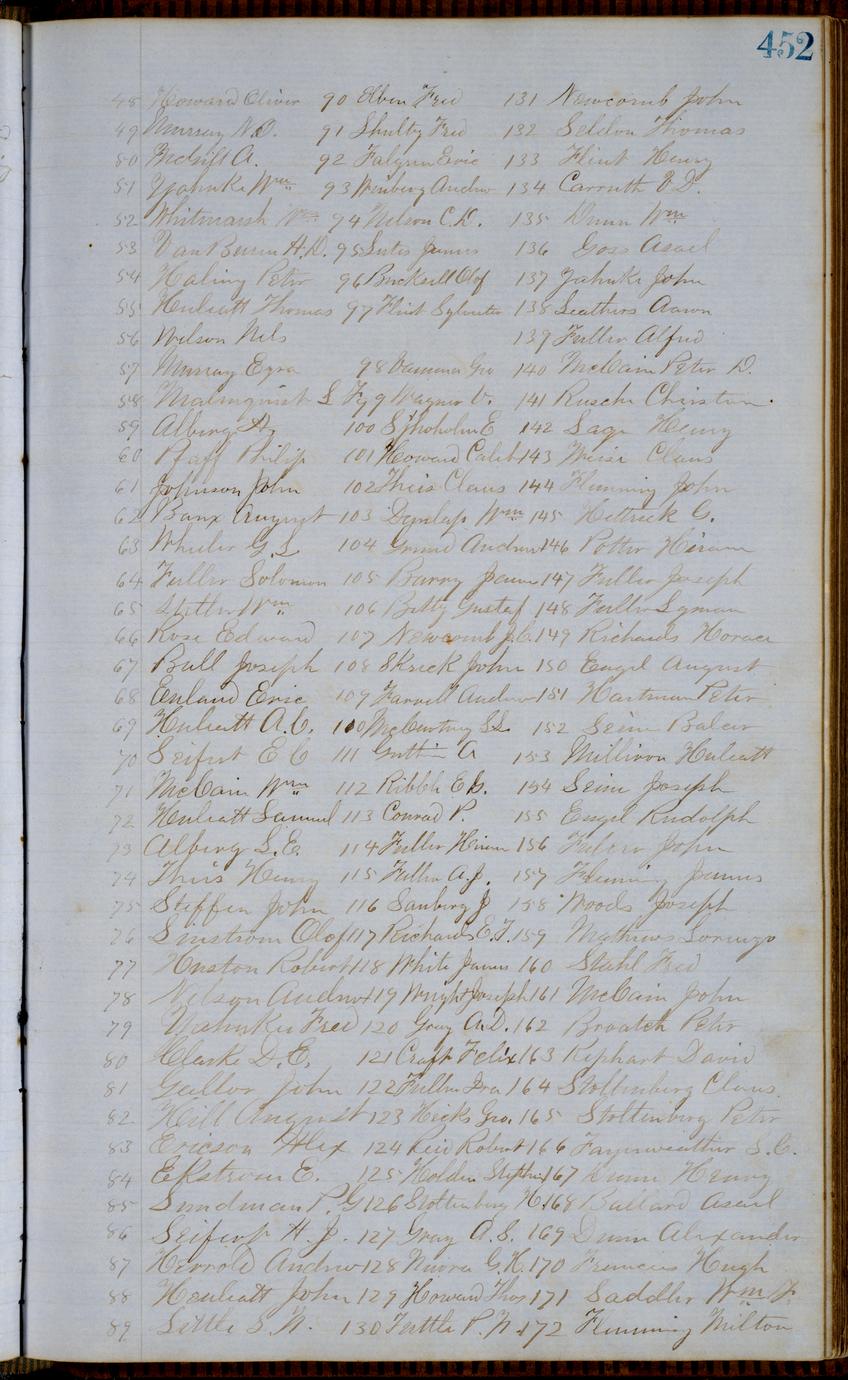 452
48 Howard Oliver 90 Elben Fred 131 Newcomb John
49 Murray N.D. 91 Shulty Fred 132 Seldon Thomas
50 McGift A. 92 Falgren Eric 133 Flint Henry
51 Yahnke Wm 93 Winberg Andrew 134 Carruth O D.
52 Whitmarsh Wm 94 Nelson C.D. 135 Dunn Wm
53 Van Buren H.D. 95 Suter James 136 Goss Asael
54 Haling Peter 96 Bucksell Olof 137 Yahnke John
55 Huleatt Thomas 97 Flint Sylvester 138 Leathers Aaron
56 Nelson Nels 139 Fuller Alfred
57 Murray Ezra 98 Geo 140 McCain Peter D.
58 Malmquist L F 99 Wagner V. 141 Rusche Christian.
59 Alberg A. 100 Sjhoholm E 142 Sage Henry
60 Pfaff Philip 101 Howard Caleb 143 Weise Claus
61 Johnson John 102 Theis Claus 144 Flemming John
62 Banx August 103 Dunlap Wm 145 Hettrick G.
63 Wheeler G.L 104 Andrew 146 Potter Hiram
64 Fuller Solomon 105 Barry James 147 Fuller Joseph
65 Stetler Wm 106 Betty Gustaf 148 Fuller Lyman
66 Rose Edward 107 Newcomb J.C. 149 Richards Horace
67 Bull Joseph 108 Skrick John 150 Engel August
68 Enland Eric 109 Farrell Andrew 151 Hartman Peter
69 Huleatt A.C. 110 McCurtney S.L 152 Seim Balser
70 Seifert E C 111 A 153 Milliron Huleatt
71 McCain Wm 112 Ribble E. 154 Seim Joseph
72 Huleatt Samuel 113 Conrad P. 155 Engel Rudolph
73 Alberg S.E. 114 Fuller Hiram 156 John
74 Theis Henry 115 Fuller A.J. 157 Fleming James
75 Steffen John 116 Sanberg J 158 Woods Joseph
76 Linstrom Olof 117 Richards E.T. 159 Mathews Lorenzo
77 Huston Robert 118 White James 160 Stahl Fred
78 Nelson Andrew 119 Wright Joseph 161 McCain John
79 Yahnke Fred 120 Gray A.D. 162 Broatch Peter
80 Clarke D.E. 121 Craft Felix 163 Kephart David
81 John 122 Fuller Ira 164 Stoltenberg Claus.
82 Hill August 123 Hicks Geo. 165 Stoltenberg Peter
83 Ericson Alex 124 Reid Robert 166 Fayerweather S.C.
84 Ekstrom E. 125 Holden Stephen 167 Dunn Henry
85 Sundman P.G 126 Stoltenberg H. 168 Bullard Asael
86 Seifert H.J. 127 Gray A.S. 169 Dunn Alexander
87 Herrold Andrew 128 G.H. 170 Francis Hugh
88 Heuleatt John 129 Howard Thos 171 Saddler Wm F.
89 Little S.N. 130 Tuttle P.N. 172 Flemming Milton